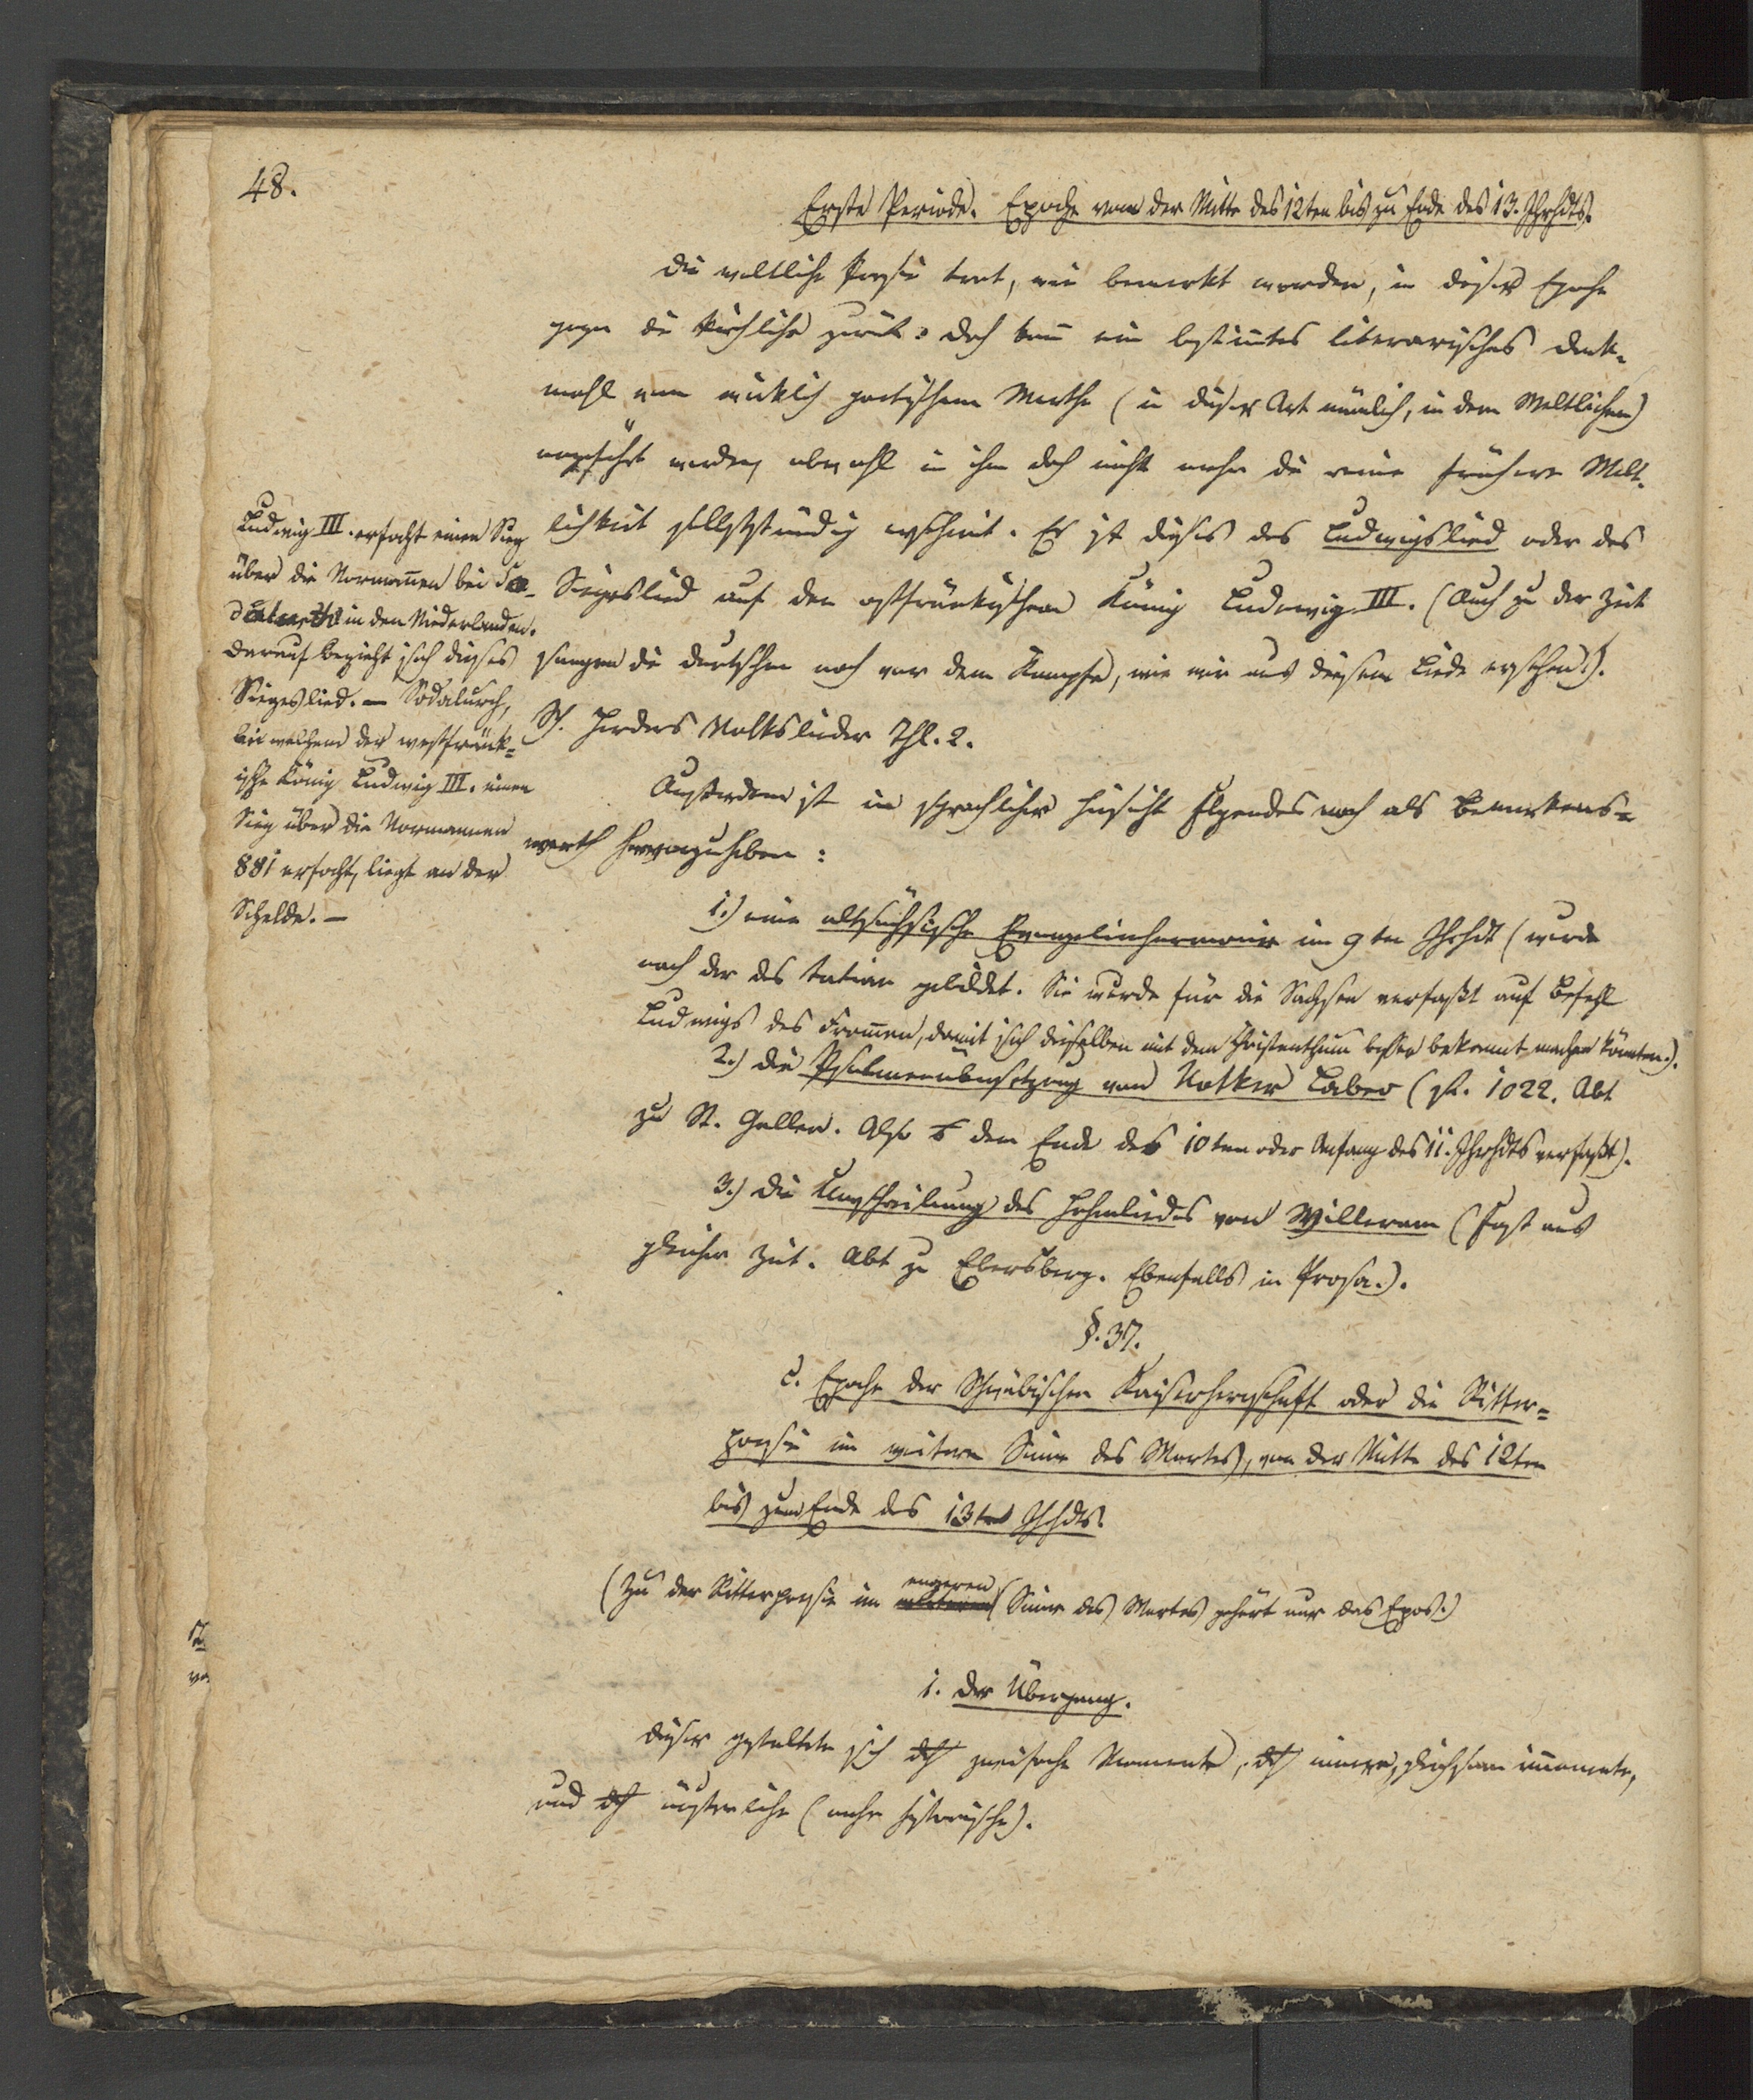 48.
Erste Periode. Epoche von der Mitte des 12ten bis zu Ende des 13. Jhrhdts.
Die weltliche Poesie trat, wie bemerkt worden, in dieser Epoche
gegen die kirchliche zurük: doch kann ein bestimtes literarisches Denk-
mahl von wirklich poetischem Werthe (in dieser Art nämlich, in dem Weltlichen)
angeführt werden, obwohl in ihm doch nicht mehr die reine frühere Welt-
lichkeit selbstständig erscheint. Es ist dieses das Ludwigslied oder das
Siegeslied auf den ostfränkischen König Ludwig III. (Auch zu der Zeit
sangen die Deutschen noch vor dem Kampfe, wie wir aus diesem Liede ersehen.).
S. Herders Volkslieder Thl. 2.
Ludwig III. erfocht einen Sieg
über die Normannen bei
in den Niederlanden.
Darauf bezieht sich dieses
Siegeslied. — Sodalurch,
bei welchem der westfränk=
ische König Ludwig III. einen
Sieg über die Normannen
881 erfocht, liegt an der
Schelde. —
Außerdem ist in sprachlicher Hinsicht Folgendes noch als bemerkens=
werth hervorzuheben:
1.) eine altsächsische Evangelienharmonie im 9ten Jhrhdt (wurde
nach der des Tatian gebildet. Sie wurde für die Sachsen verfaßt auf Befehl
Ludwigs des Frommen, damit sich dieselben mit dem Christenthum besser bekannt machen könnten.).
2.) Die Psalmenübersetzung von Notker Labeo (st. 1022. Abt
zu St. Gallen. Also dem Ende des 10ten oder Anfang des 11. Jhrhdts verfaßt).
3.) Die Umschreibung des Hohenliedes von Willeram (Fast aus
gleicher Zeit. Abt zu Ebersberg. Ebenfalls in Prosa.).
§. 37.
C. Epoche der Schwäbischen Kaiserherrschaft oder die Ritter=
poesie im weitern Sinne des Wortes, von der Mitte des 12ten
bis zum Ende des 13ten Jhrhdts.
(Zu der Ritterpoesie im engeren Sinne des Wortes gehört nur das Epos.)
1. Der Übergang.
Dieser gestaltete sich dch zweifache Momente, dch innere, gleichsam immanente,
und dch äußerliche (mehr historische).